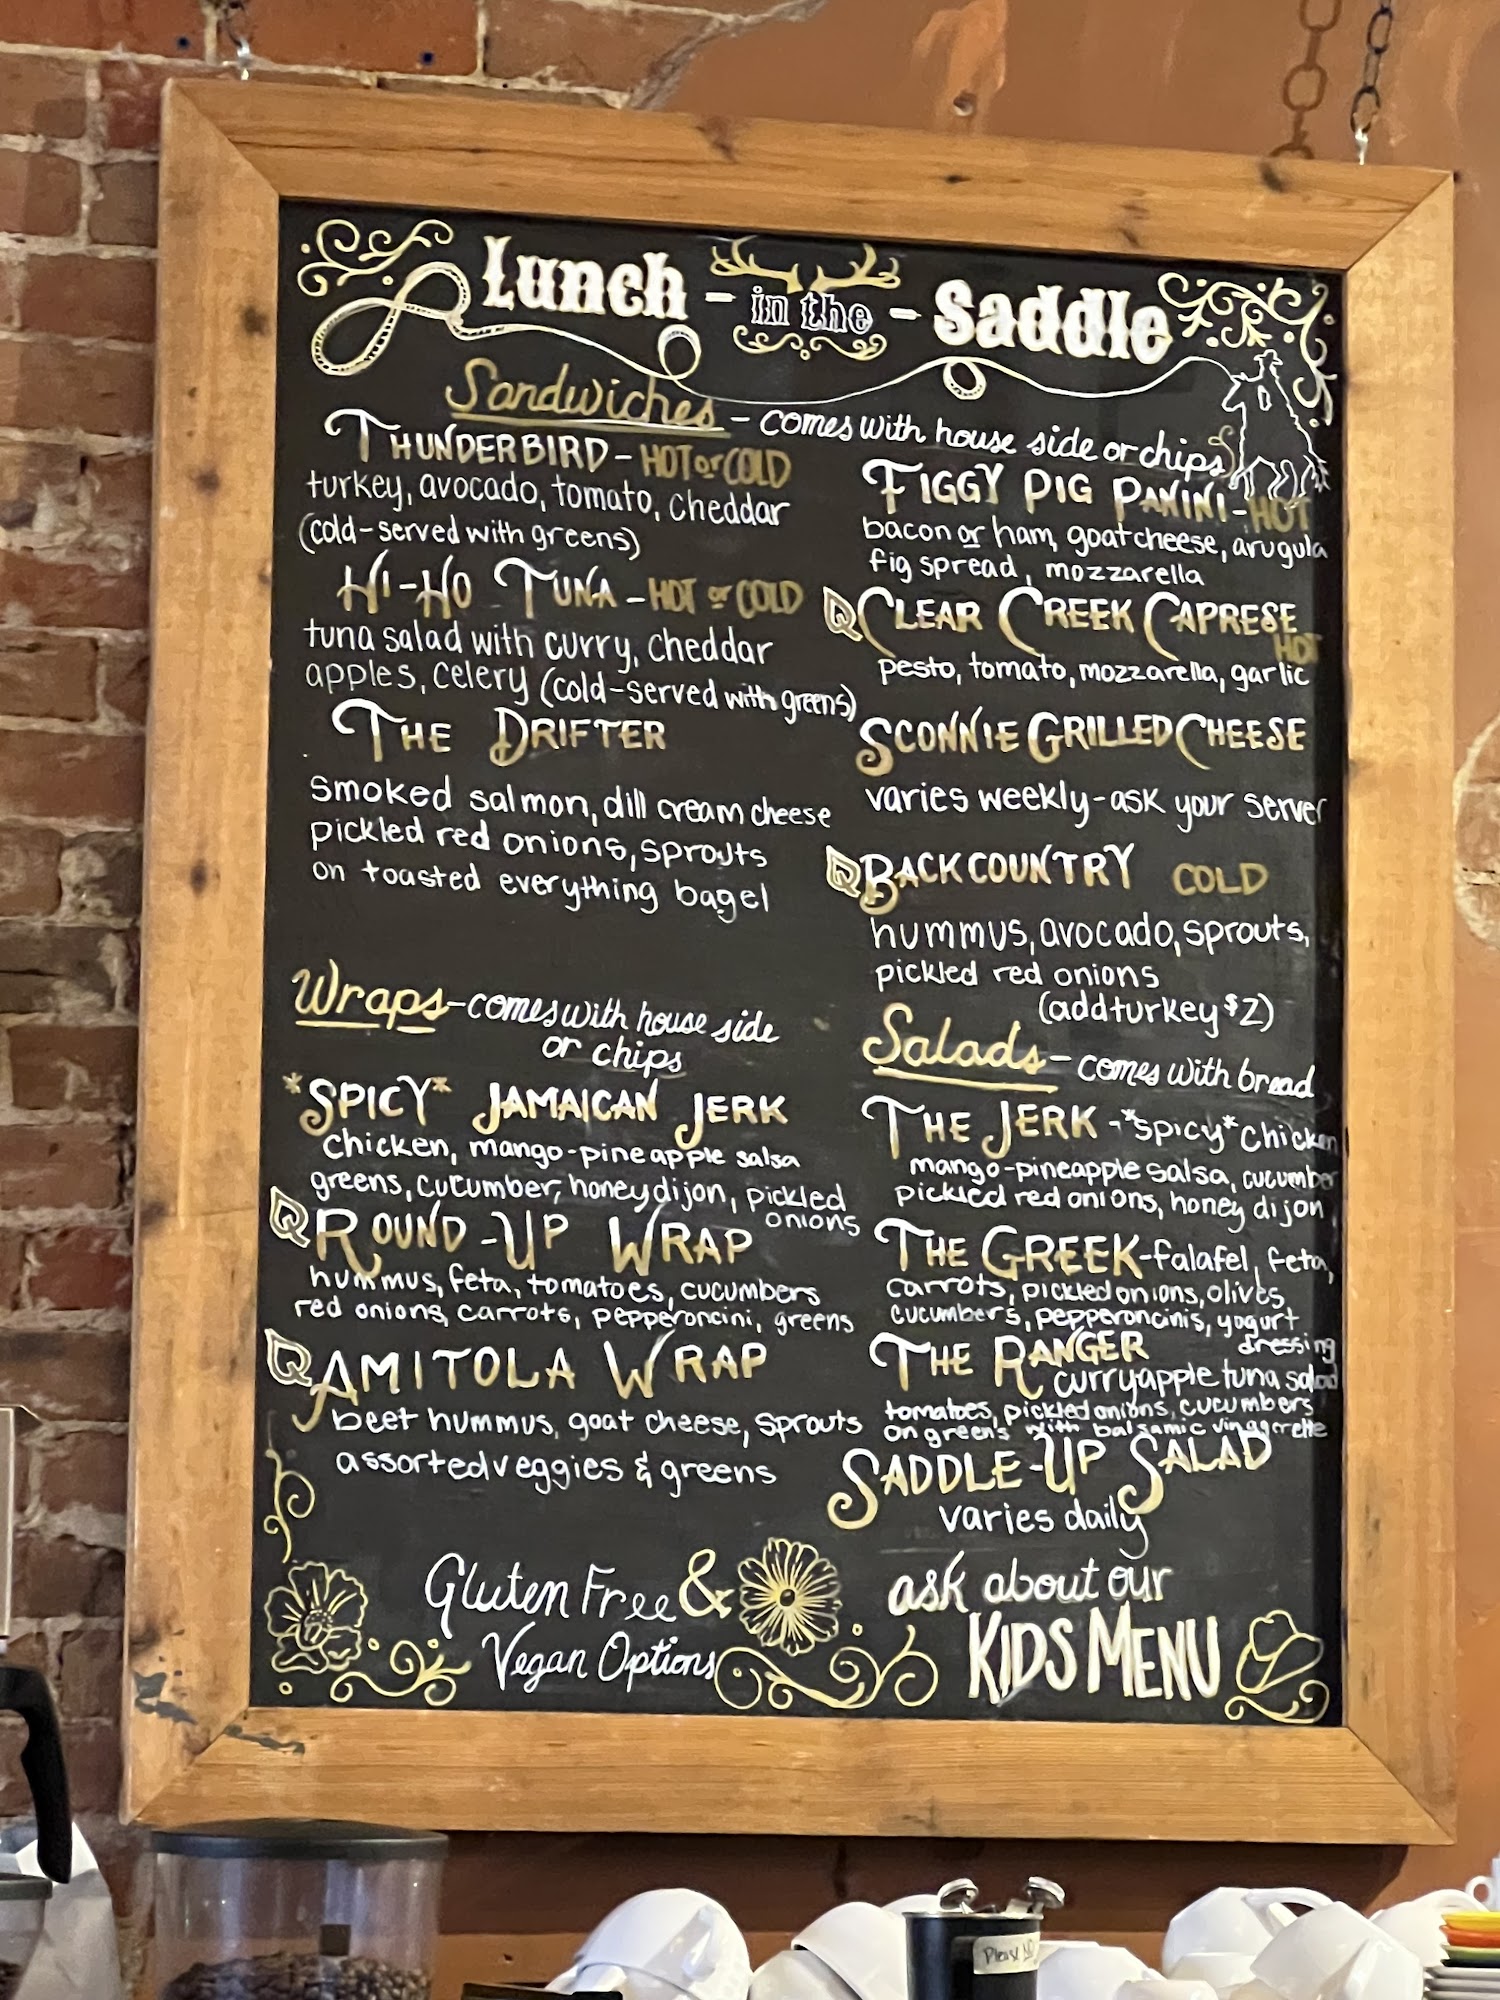 Lunch - in the - Saddle
Sandwiches - comes with house side or chips
THUNDERBIRD - HOT or COLD
turkey, avocado, tomato, cheddar
(cold-served with greens)
HI-HO TUNA - HOT or COLD
tuna salad with curry, cheddar
apples, celery (cold-served with greens)
THE DRIFTER
smoked salmon, dill cream cheese
pickled red onions, sprouts
on toasted everything bagel
FIGGY PIG PANINI - HOT
bacon or ham, goat cheese, arugula
fig spread, mozzarella
CLEAR CREEK CAPRESE
HOT
pesto, tomato, mozzarella, garlic
SCONNIE GRILLED CHEESE
varies weekly - ask your server
BACKCOUNTRY COLD
hummus, avocado, sprouts,
pickled red onions
(add turkey $2)
Wraps - comes with house side
or chips
*SPICY* JAMAICAN JERK
Chicken, mango-pineapple salsa
greens, cucumber, honey dijon, pickled
onions
ROUND-UP WRAP
hummus, feta, tomatoes, cucumbers
red onions, carrots, pepperoncini, greens
AMITOLA WRAP
beet hummus, goat cheese, sprouts
assorted veggies & greens
Salads - comes with bread
THE JERK - *spicy* chicken
mango-pineapple salsa, cucumber
pickled red onions, honey dijon
THE GREEK - falafel, feta,
carrots, pickled onions, olives,
cucumbers, pepperoncinis, yogurt
dressing
THE RANGER
curry apple tuna salad
tomatoes, pickled onions, cucumbers
on greens with balsamic vinagerette
SADDLE-UP SALAD
varies daily
Gluten Free &
Vegan Options
ask about our
KIDS MENU
Please